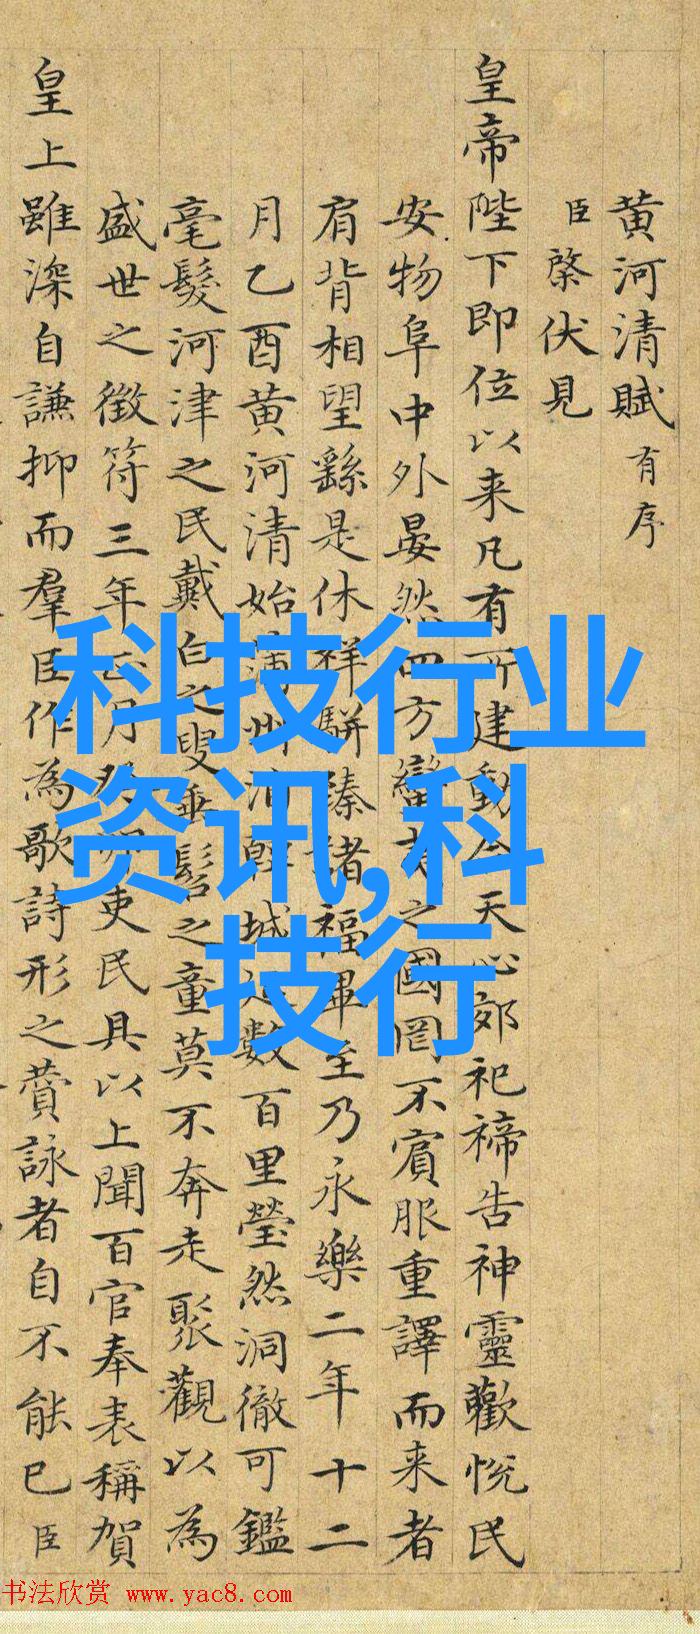 黄河清賦有序
臣棨伏見
皇帝陛下即位以来凡有所建動合天心郊祀禘告神靈歡悦民
安物阜中外晏然四方蠻夷之國罔不賓服重譯而来者
肩背相望繇是休祥駢臻諸福畢至乃永樂二年十二
月乙酉黄河清始蒲州清韓城近數百里瑩然洞徹可鑑
毫髮河津之民戴白之叟垂髫之童莫不奔走聚觀以為
盛世之徵符三年正月吏民具以上聞百官奉表稱賀
皇上雖深自謙抑而羣臣作為歌詩形之賛詠者自不能已臣
科技行业
资讯,科
技行
书法欣赏 www.yac8.com